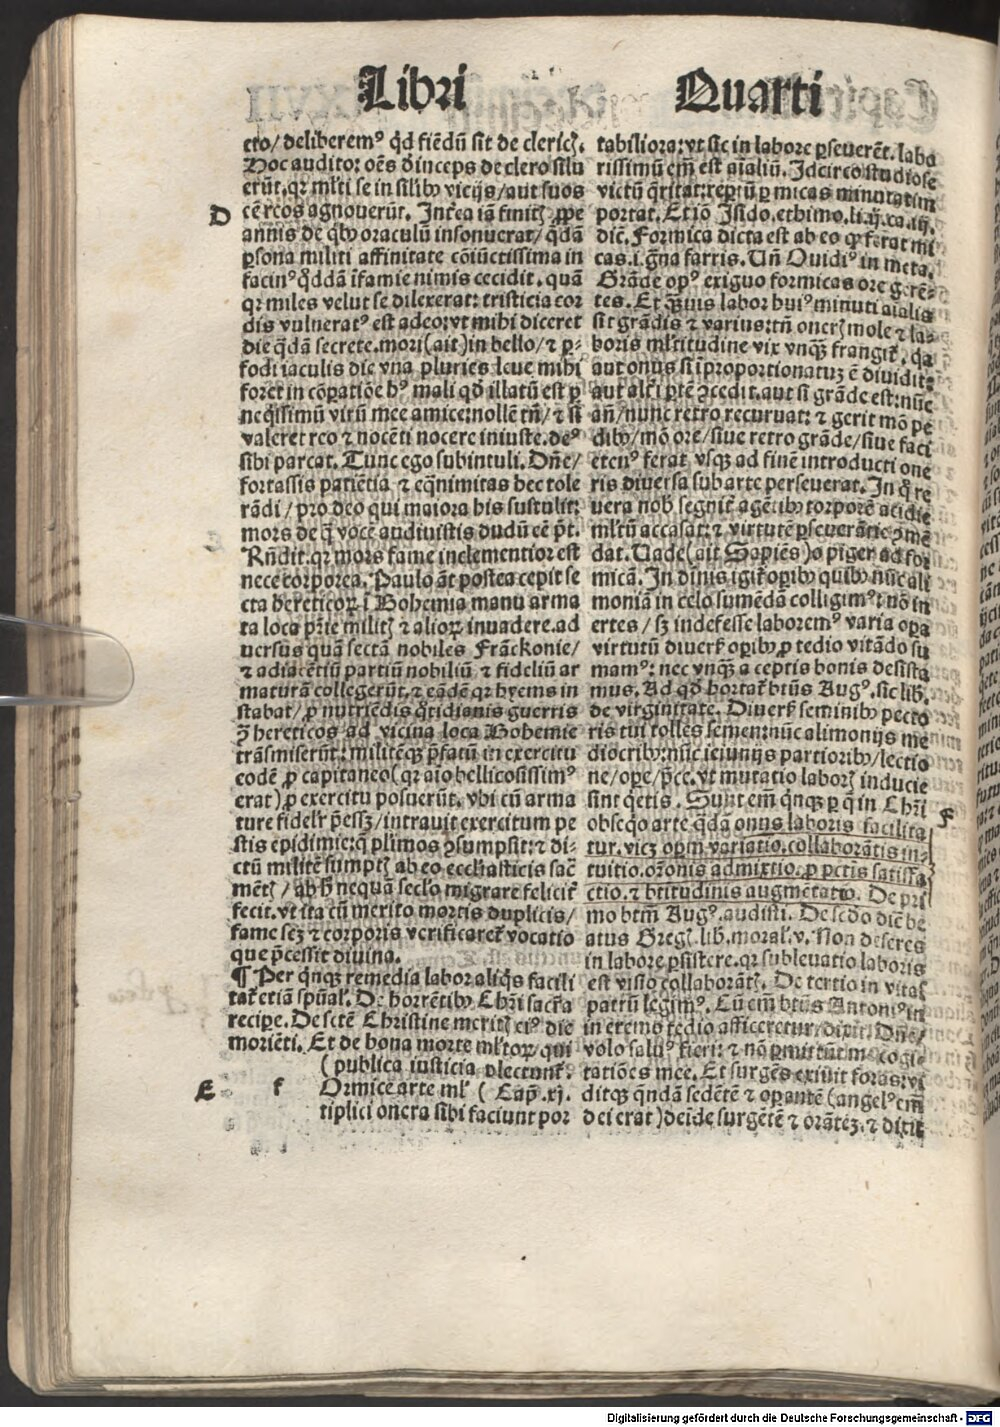 Libri Quarti
cto/ deliberemꝰ qd fiēdū sit de clericꝭ.
Hoc audito: oēs deinceps de clero silu
erūt. qr ml'ti se in sil'ibꝫ vicijs/ aut suos
D
cē reos agnouerūt. Int'ea iā finitꝭ ꝓpe
annis de qͥbꝫ oraculū insonuerat/ qͥdā
ꝑsona militi affinitate cōiūctissima in
facinꝰ qͦddā īfamie nimis cecidit. quā
qr miles velut se dilexerat: tristicia cor
dis vulneratꝰ est adeo: vt mihi diceret
die qͣdā secrete. mori (ait) in bello/ ⁊ ꝑ-
fodi iaculis die vna pluries leue mihi
foret in cōꝑatiōe hꝰ mali qd illatū est ꝑ
neqͥssimū virū mee amice: nollē tn̄/ ⁊ si
valeret reo ⁊ nocēti nocere iniuste. deꝰ
sibi parcat. Tunc ego subintuli. Dn̄e/
fortassis patiētia ⁊ eqͣnimitas hec tole
rādi/ pro deo qui maiora his sustulit:
mors de qͣ vocē audiuistis dudū cē pt̄.
Rn̄dit. qr mors fame inclementior est
nece corporea. Paulo āt postea cepit se
cta hereticoꝝ ī Bohemia manu arma
ta loca pr̄ie militꝭ ⁊ alioꝝ inuadere. ad
uersus quā sectā nobiles Frāckonie/
⁊ adiacētiū partiū nobiliū ⁊ fideliū ar
maturā collegerūt. ⁊ eādē qr hyems in
stabat/ ꝓ nutriēdis qͦtidianis guerris
ꝯͣ hereticos ad vicina loca Bohemie
trāsmiserūt: militēqꝫ p̄fatū in exercitu
eodē ꝓ capitaneo (qr aīo bellicosissimꝰ
erat) ꝓ exercitu posuerūt. vbi cū arma
ture fidel'r p̄essꝫ/ intrauit exercitum pe
stis epidimie: qͥ pl'imos ꝯsumpsit: ⁊ di-
ctū militē sumptꝭ ab eo ecclesiasticis sac̄
mētꝭ/ ab hꝰ nequā secl'o migrare felicit'
fecit. vt ita cū merito mortis duplicis/
fame scꝫ ⁊ corporis verificaret' vocatio
que p̄cessit diuina.
¶ Per qͥnqꝫ remedia labor aliqͥs facili
tat' etiā spūal'. De horrētibꝫ Chr̄i sacr̄a
recipe. De sct̄e Christine meritꝭ eiꝰ die
moriēti. Et de bona morte ml'toꝝ/ qui
( publica iusticia plectunt'.
E
f Ormice arte ml' ( Cap̄. xj.
tiplici onera sibi faciunt por
tabiliora: vt sic in labore ꝑseuerēt. labo
riosissimū em̄ est aīaliū. Idcirco studiose
victū qͥritat: reptū ꝑ micas minutatim
portat. Et iō Isido. ethimo. li. ij. ca. iij.
dic̄. Formica dicta est ab eo qͦ ferat mi
cas. i. gͣna farris. Un̄ Ouidiꝰ in meta.
Grāde opꝰ exiguo formicas ore gerē-
tes. Et qͣꝫuis labor huiꝰ minuti aīalis
sit grādis ⁊ varius: tn̄ onerꝭ mole ⁊ la-
boris ml'titudine vix vnqͣꝫ frangit'. qa
aut onus si īproportionatuꝫ ē diuidit:
aut alt'i ptē ꝯcedit. aut si grāde est: nūc
an̄/ nunc retro recuruat: ⁊ gerit mō pe
dibꝫ/ mō ore/ siue retro grāde/ siue faci
etenꝰ ferat vsqꝫ ad finē introducti one
ris diuersa sub arte perseuerat. In qͣ re
vera nobꝭ segnit' agētibꝫ torporē acidie
ml'tū accusat: ⁊ virtutē ꝑseuerātie ꝯmē
dat. Uade (ait Sapiēs) o piger ad for
micā. In diuinis igit' opibꝫ quibꝫ nūc ali
moniā in celo sumēdā colligimꝰ: nō in
ertes/ sꝫ indefesse laboremꝰ varia opa
virtutū diuersꝭ opibꝫ ꝓ tedio vitādo su
mamꝰ: nec vnqͣꝫ a ceptis bonis desista
mus. Ad qd hortat' btūs Augꝰ. sic lib.
de virginitate. Diuersꝭ seminibꝫ pecto
ris tui tolles semen: nūc alimonijs me
diocribꝫ: nūc ieiunijs partioribꝫ/ lectio
ne/ ope/ p̄ce. vt mutatio laborꝭ inducie
sint qͥetis. Sunt em̄ qͥnqꝫ ꝑ qͥ in Chr̄i
F
obseqͥo arte qͣdā onus laboris facilita
tur. vicꝫ opm variatio. collaborātis in-
tuitio. orōnis admixtio. ꝓ pctīs satisfa
ctio. ⁊ btītudinis augmētatio. De pri
mo btm̄ Augꝰ. audisti. De scdo dic̄ be
atus Gregꝭ. lib. moral'. v. Non deseres
in labore ꝑsistere. qr subleuatio laboris
est visio collaborātꝭ. De tertio in vitas
patrū legimꝰ. Cū em̄ btūs Antoniꝰ in
in eremo tedio afficeretur/ dixit. Dn̄e/
volo saluꝰ fieri: ⁊ nō ꝑmittūt me cogi-
tatiōes mee. Et surgēs exiuit foras: vi
ditqꝫ qͥndā sedētē ⁊ opantē (angelꝰ em̄
dei erat) deīde surgētē ⁊ orātēꝫ. ⁊ dixit
Digitalisierung gefördert durch die Deutsche Forschungsgemeinschaft - DFG